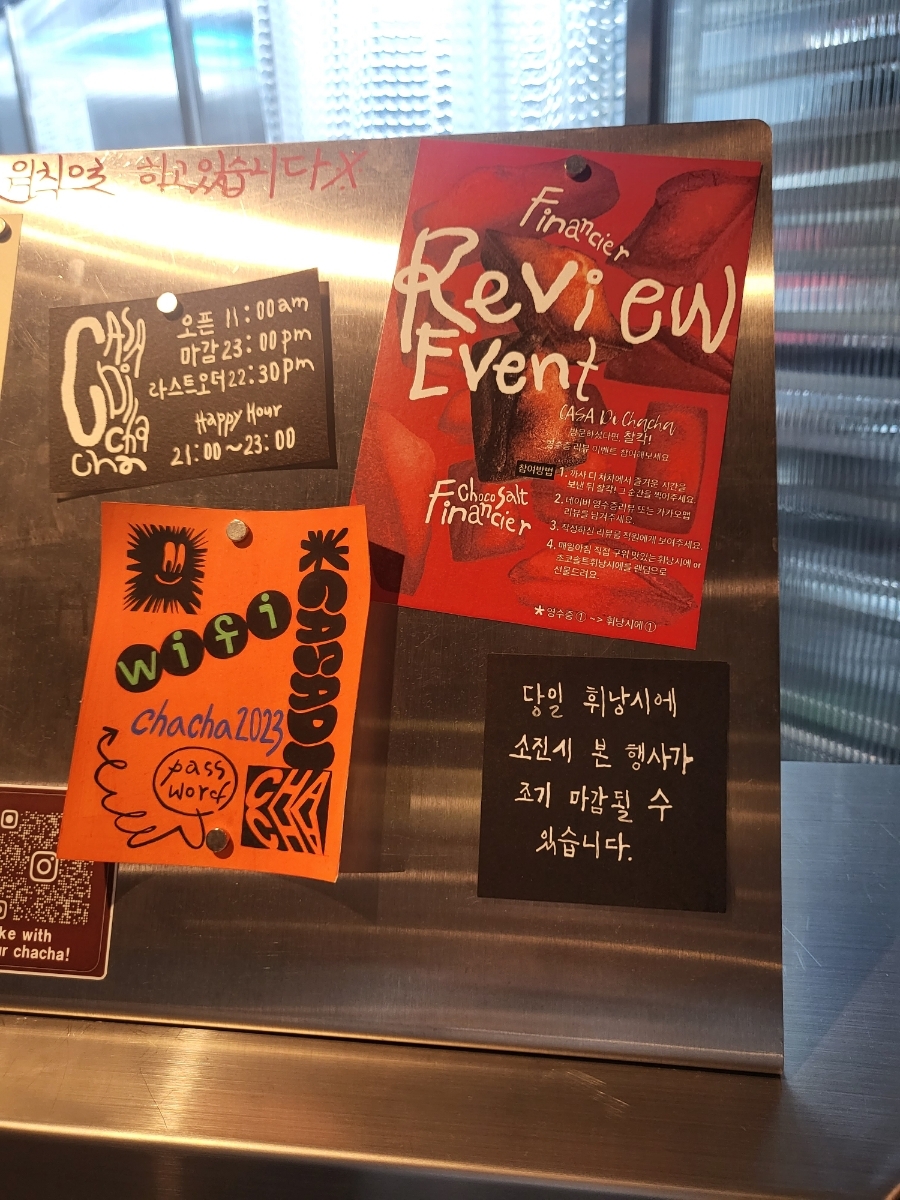 하고있습니다
CASA
Di
Cha
Cha
오픈 11:00am
마감 23:00pm
라스트오더 22:30pm
Happy Hour
21:00~23:00
Financier
Review
Event
CASA Di Chacha
방문하셨다면, 찰칵!
영수증 리뷰 이벤트 참여해보세요.
참여방법
1. 까사 디 차차에서 즐거운 시간을
보낸 뒤 찰칵! 그 순간을 찍어주세요.
2. 네이버 영수증리뷰 또는 카카오맵
리뷰를 남겨주세요.
3. 작성하신 리뷰를 직원에게 보여주세요.
4. 매일아침 직접 구워 맛있는 휘낭시에 or
초코솔트휘낭시에를 랜덤으로
선물드려요.
*영수증 ① -> 휘낭시에 ①
Choco Salt
Financier
wifi
*CASADI
CHA
CHA
chacha2023
pass
word
당일 휘낭시에
소진시 본 행사가
조기 마감될 수
있습니다.
ke with
r chacha!